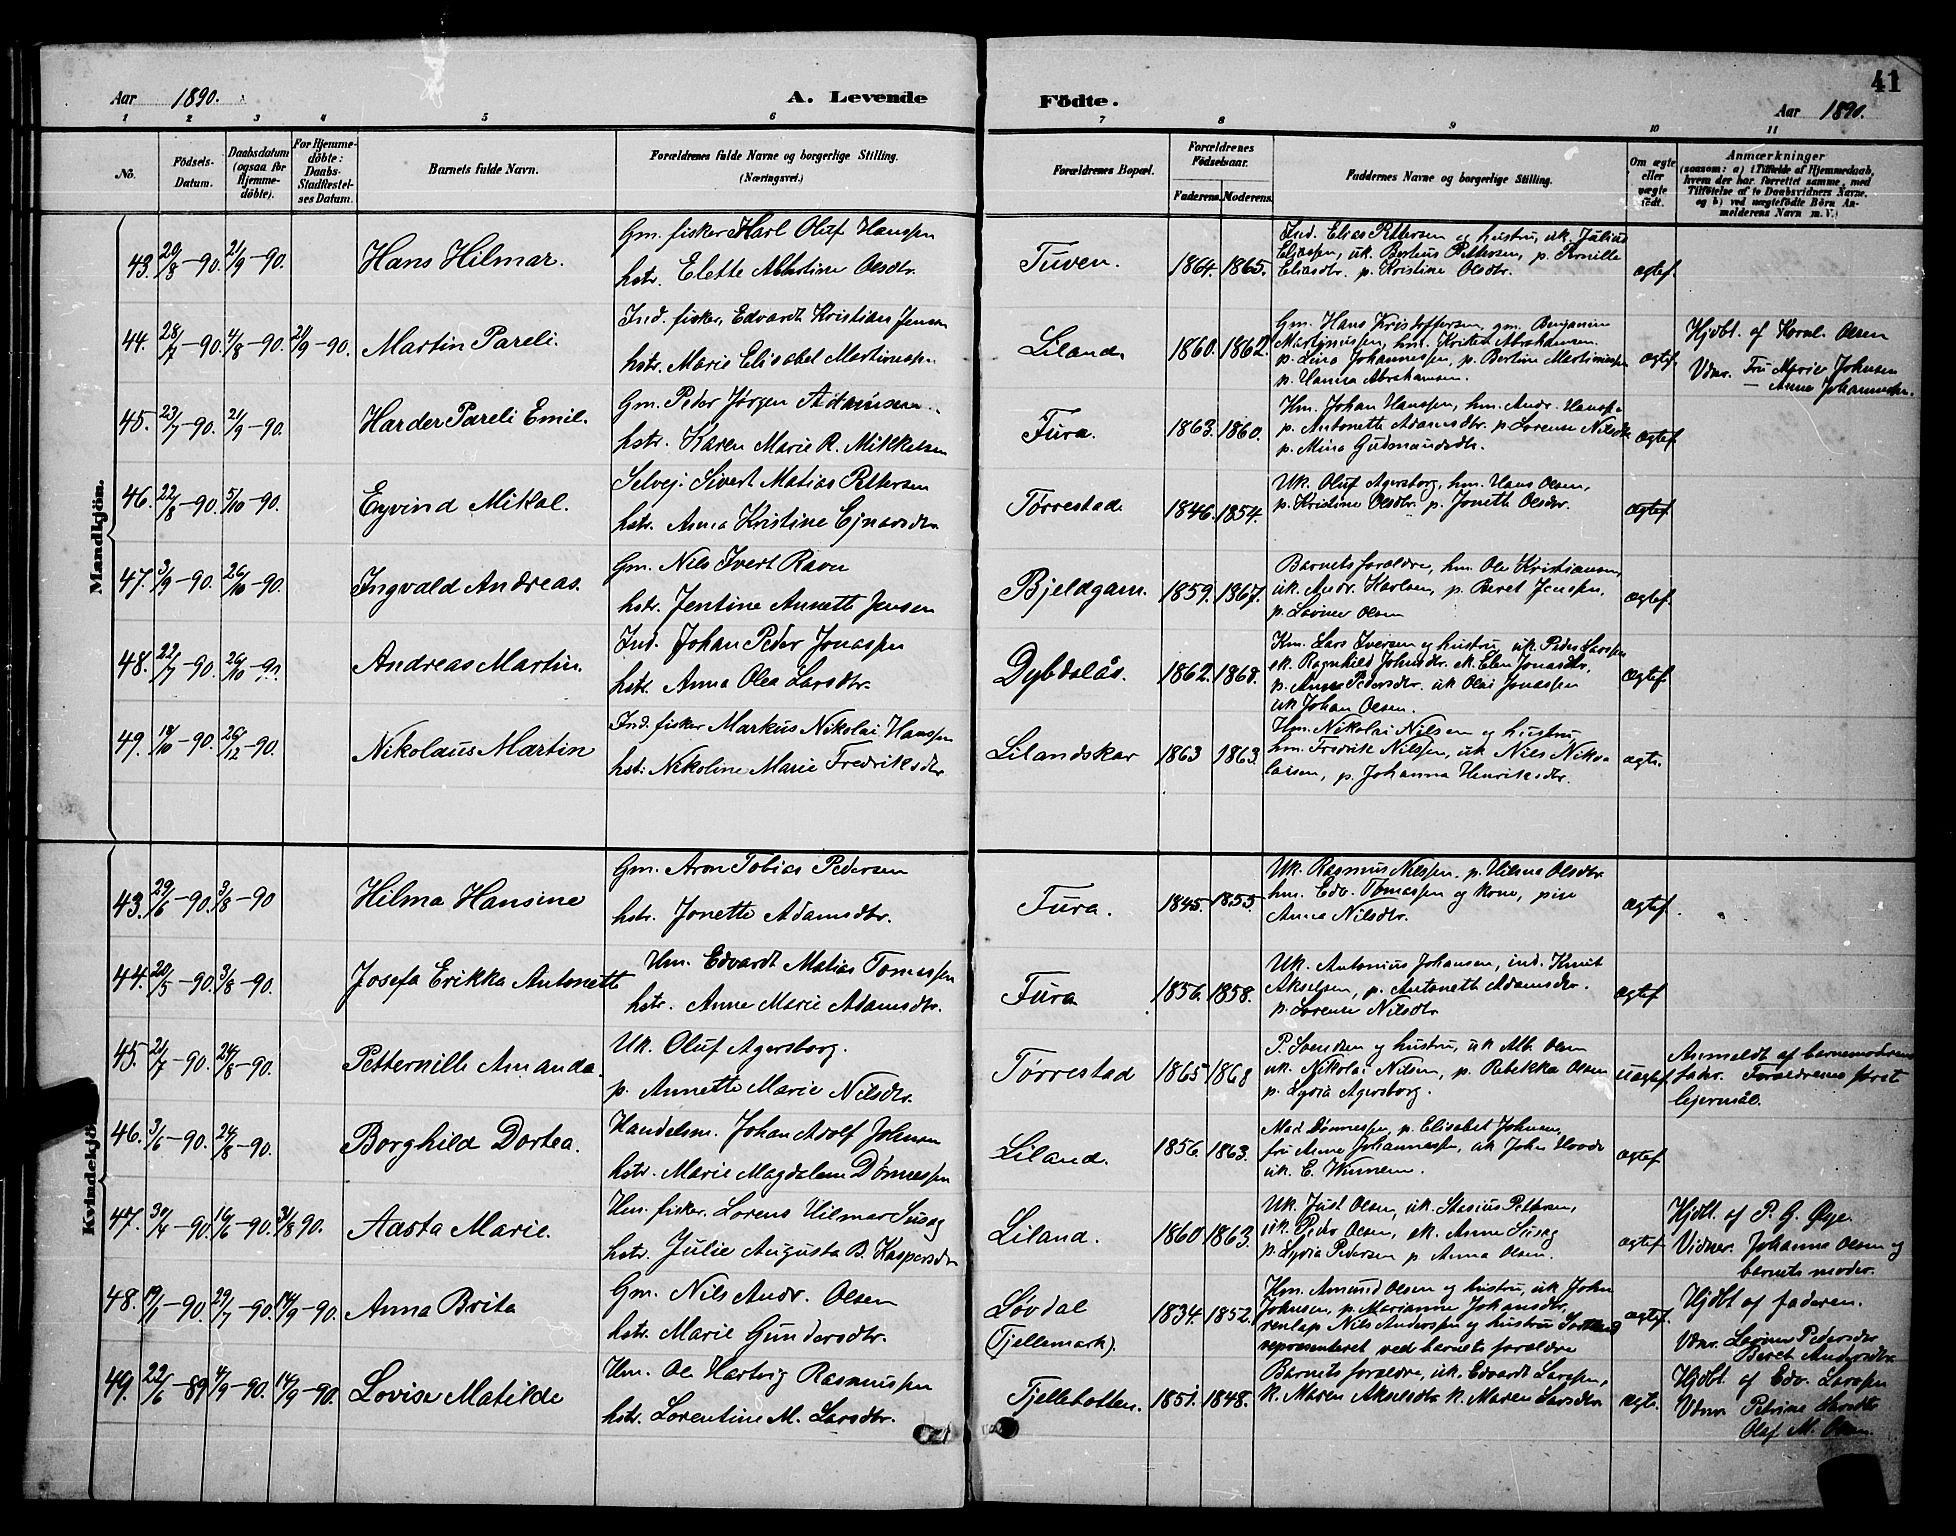 41
Aar 1890.
A. Levende
Födte.
Aar 1890.
1 2 3 4 5 6 7 8 9 10 11
No.
Födsels-
Datum.
Daabsdatum
(ogsaa för
Hjemme-
döbte).
For Hjemme-
döbte:
Daabs-
Stadfæstel-
ses Datum.
Barnets fulde Navn.
Forældrenes fulde Navne og borgerlige Stilling.
(Næringsvei.)
Forældrenes Bopæl.
Forældrenes
Födselsaar.
Faderens. Moderens.
Faddernes Navne og borgerlige Stilling.
Om ægte
eller
uægte
födt.
Anmærkninger
(saasom: a) i Tilfælde af Hjemmedaab,
hvem der har forrettet samme, med
Tilföielse af to Daabsvidners Navne,
og b) ved uægtefödte Börn An-
melderens Navn m. V.)
Mandkjön.
43. 20/8-90. 21/9-90.
Hans Hilmar.
Gm. fisker Karl Oluf Hanssen
hstr. Elette Albertine Olsdtr.
Tuven.
1864. 1865.
Ind. Elias Pettersen og hustru, uk. Julius
Eliassen, uk. Bertus Pettersen, p. Pernille
Eliasdtr. p. Kristine Olsdtr.
ægtef.
44. 28/7-90. 4/8-90. 21/9-90.
Martin Pareli.
Ind. fisker, Edvardt Kristian Jensen
hstr. Marie Elisabet Martinussen.
Liland.
1860. 1862.
Gm. Hans Kristoffersen, gm. Benjamin
Martinussen, hm. Kristen Abrahamsen.
p. Lina Johannessen, p. Bertine Martinussen
p. Hanna Abrahamsen.
ægtef.
Hjdbt. af Kornl. Olsen
Vdnr. Fru Marie Johnsen
— Anne Johannessen.
45. 23/7-90. 21/9-90.
Harder Pareli Emil.
Gm. Peder Jørgen Adamsen.
hstr. Karen Marie R. Mikkelsen
Fura.
1863. 1860.
Hm. Johan Hanssen, hm. Andr. Hanss.
p. Antonette Adamsdtr. p. Lorense Nilsdtr.
p. Mina Gudmundsdtr.
ægtef.
46. 22/8-90. 5/10-90.
Eyvind Mikal.
Selvej. Sivert Matias Pettersen
hstr. Anna Kristine Ejnarsdtr.
Tørrestad.
1846. 1854.
Uk. Oluf Agersborg, hm. Hans Olsen,
p. Kristine Olsdtr. p. Jonette Olsdtr.
ægtef.
47. 3/9-90. 26/10-90.
Ingvald Andreas.
Gm. Nils Ivert Ravn
hstr. Jentine Annette Jensen
Bjeldgam.
1859. 1867.
Barnets forældre, hm. Ole Kristiansen,
uk. Andr. Karlsen, p. Beret Jenssen,
p. Lovise Olsen
ægtef.
48. 22/7-90. 26/10-90.
Andreas Martin.
Ind. Johan Peder Jonassen
hstr. Anna Olea Larsdtr.
Dybdalås.
1862. 1868.
Km. Lars Iversen og hustru, uk. Peder Larssen
ek. Ragnhild Johnsdtr. ek. Elen Jonasdtr,
p. Anne Pedersdtr. uk. Olai Jonassen
uk Johan Olsen.
ægtef.
49. 14/10-90. 26/12-90.
Nikolaus Martin
Ind. fisker Markus Nikolai Hanssen
hstr. Nikoline Marie Fredriksdtr.
Lilandskar
1863 1863.
Hm. Nikolai Nilsen og hustru
hm. Fredrik Nilssen, uk. Nils Nikoa
laisen, p. Johanna Henriksdtr.
ægte.
Kvindekjö
43. 29/6-90. 3/8-90
Hilma Hansine
Gm. Aron Tobias Pedersen
hstr. Jonette Adamsdtr.
Fura.
1845. 1855.
Uk. Rasmus Nilssen. p. Hilma Olsdtr.
hm. Edv. Tomassen og kone, pike
Anna Nilsdtr.
ægtef.
44. 20/5-90. 3/8-90.
Josefa Erikka Antonette
Hm. Edvardt Matias Tomassen
hstr. Anne Marie Adamsdtr.
Fura
1856. 1858.
Uk. Antonius Johansen, ind. Knut
Akselsen, p. Antonette Adamsdtr.
p. Lorense Nilsdtr.
ægtef.
45. 21/7-90. 24/8-90.
Petternille Amanda.
Uk. Oluf Agersborg.
p. Annette Marie Nilsdtr.
Tørrestad
1865 1868
P. Svendsen og hustru, uk Alb. Olsen
uk. Nikolai Nilsen, p. Rebekka Olsen
p. Lydia Agersborg.
uægtef.
Anmeldt af barnemoderens
Forældrenes første
lejermål.
46. 3/6-90. 24/8-90.
Borghild Dortea.
Handelsm. Johan Adolf Johnsen
hstr. Marie Magdalena Dønnessen
Liland.
1856. 1863.
Mad. Dønnessen, p. Elisabet Johnsen,
fru Anne Johannessen, uk John
uk. E. Winnem.
ægtef.
47. 30/4-90. 16/6-90. 31/8 90.
Aasta Marie.
Hm. fisker. Lorens Hilmar Susæg
hstr. Julie Augusta B. Kaspersdtr.
Liland.
1860 1863.
Uk. Just Olsen, uk. Stasius Pettersen,
uk. Peder Olsen, ek. Anne Susæg
p. Lydia Pedersen p. Anna Olsen.
ægtef.
Hjdbt. af P. G. Øye.
Vidner. Johanna Olsen og
barnets moder.
48. 19/1-90. 29/7-90. 14/9-90.
Anna Brita
Gm. Nils Andr. Olsen
hstr. Marie Gundersdtr.
Søvdal
(Tjellemark).
1834. 1852.
Hm. Amund Olsen og hustru, uk. John
Johnsen, p. Marianne Johansdtr,
renlap Nils Anderssen og hustru
representeret ved barnets forældre
ægtef.
Hjdbt af faderen.
Vdnr. Lovise Pedersdtr
Beret Andersdtr.
49. 22/6-89 4/9-90. 14/9-90.
Lovise Matilde
Hm. Ole Hartvig Rasmussen
hstr. Lorentine M. Larsdtr.
Tjellebotten.
1851. 1848.
Barnets forældre, uk. Edvardt Larssen,
k. Maren Akselsdtr. k. Maren Larsdtr.
ægte.
Hjdbt. af Edv. Larssen
Vdnr. Petrine Larsdtr
Oluf M. Olsen.